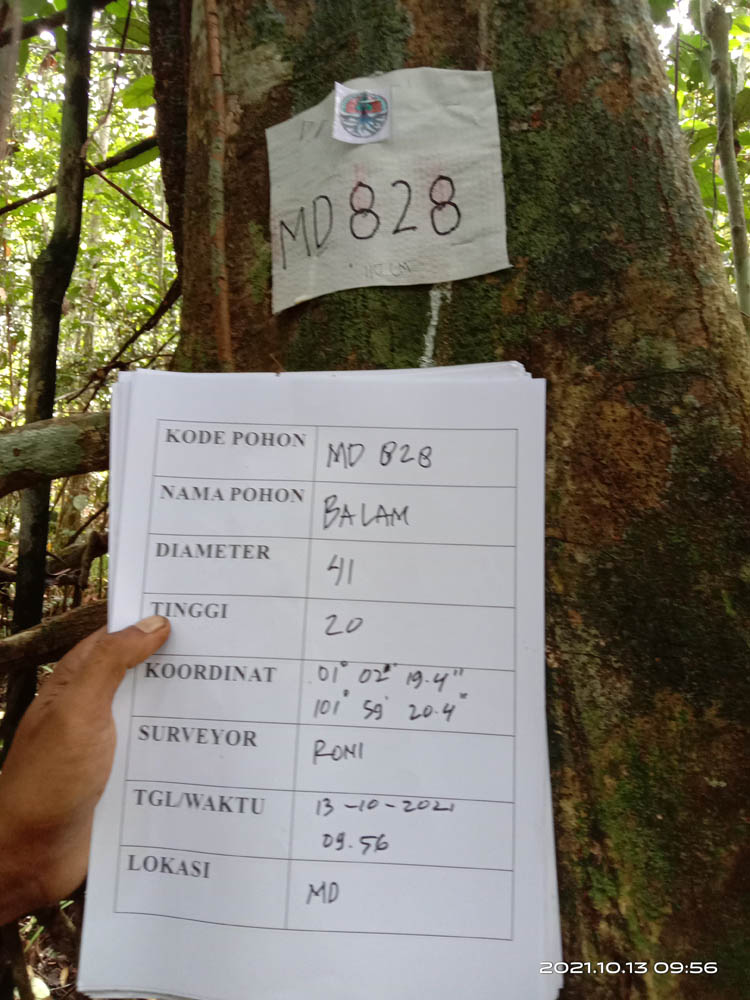 MD 828
KODE POHON MD 828
NAMA POHON BALAM
DIAMETER 41
TINGGI 20
KOORDINAT 01° 02' 19.4"
101° 59' 20.4"
SURVEYOR RONI
TGL/WAKTU 13-10-2021
09.56
LOKASI MD
2021.10.13 09:56